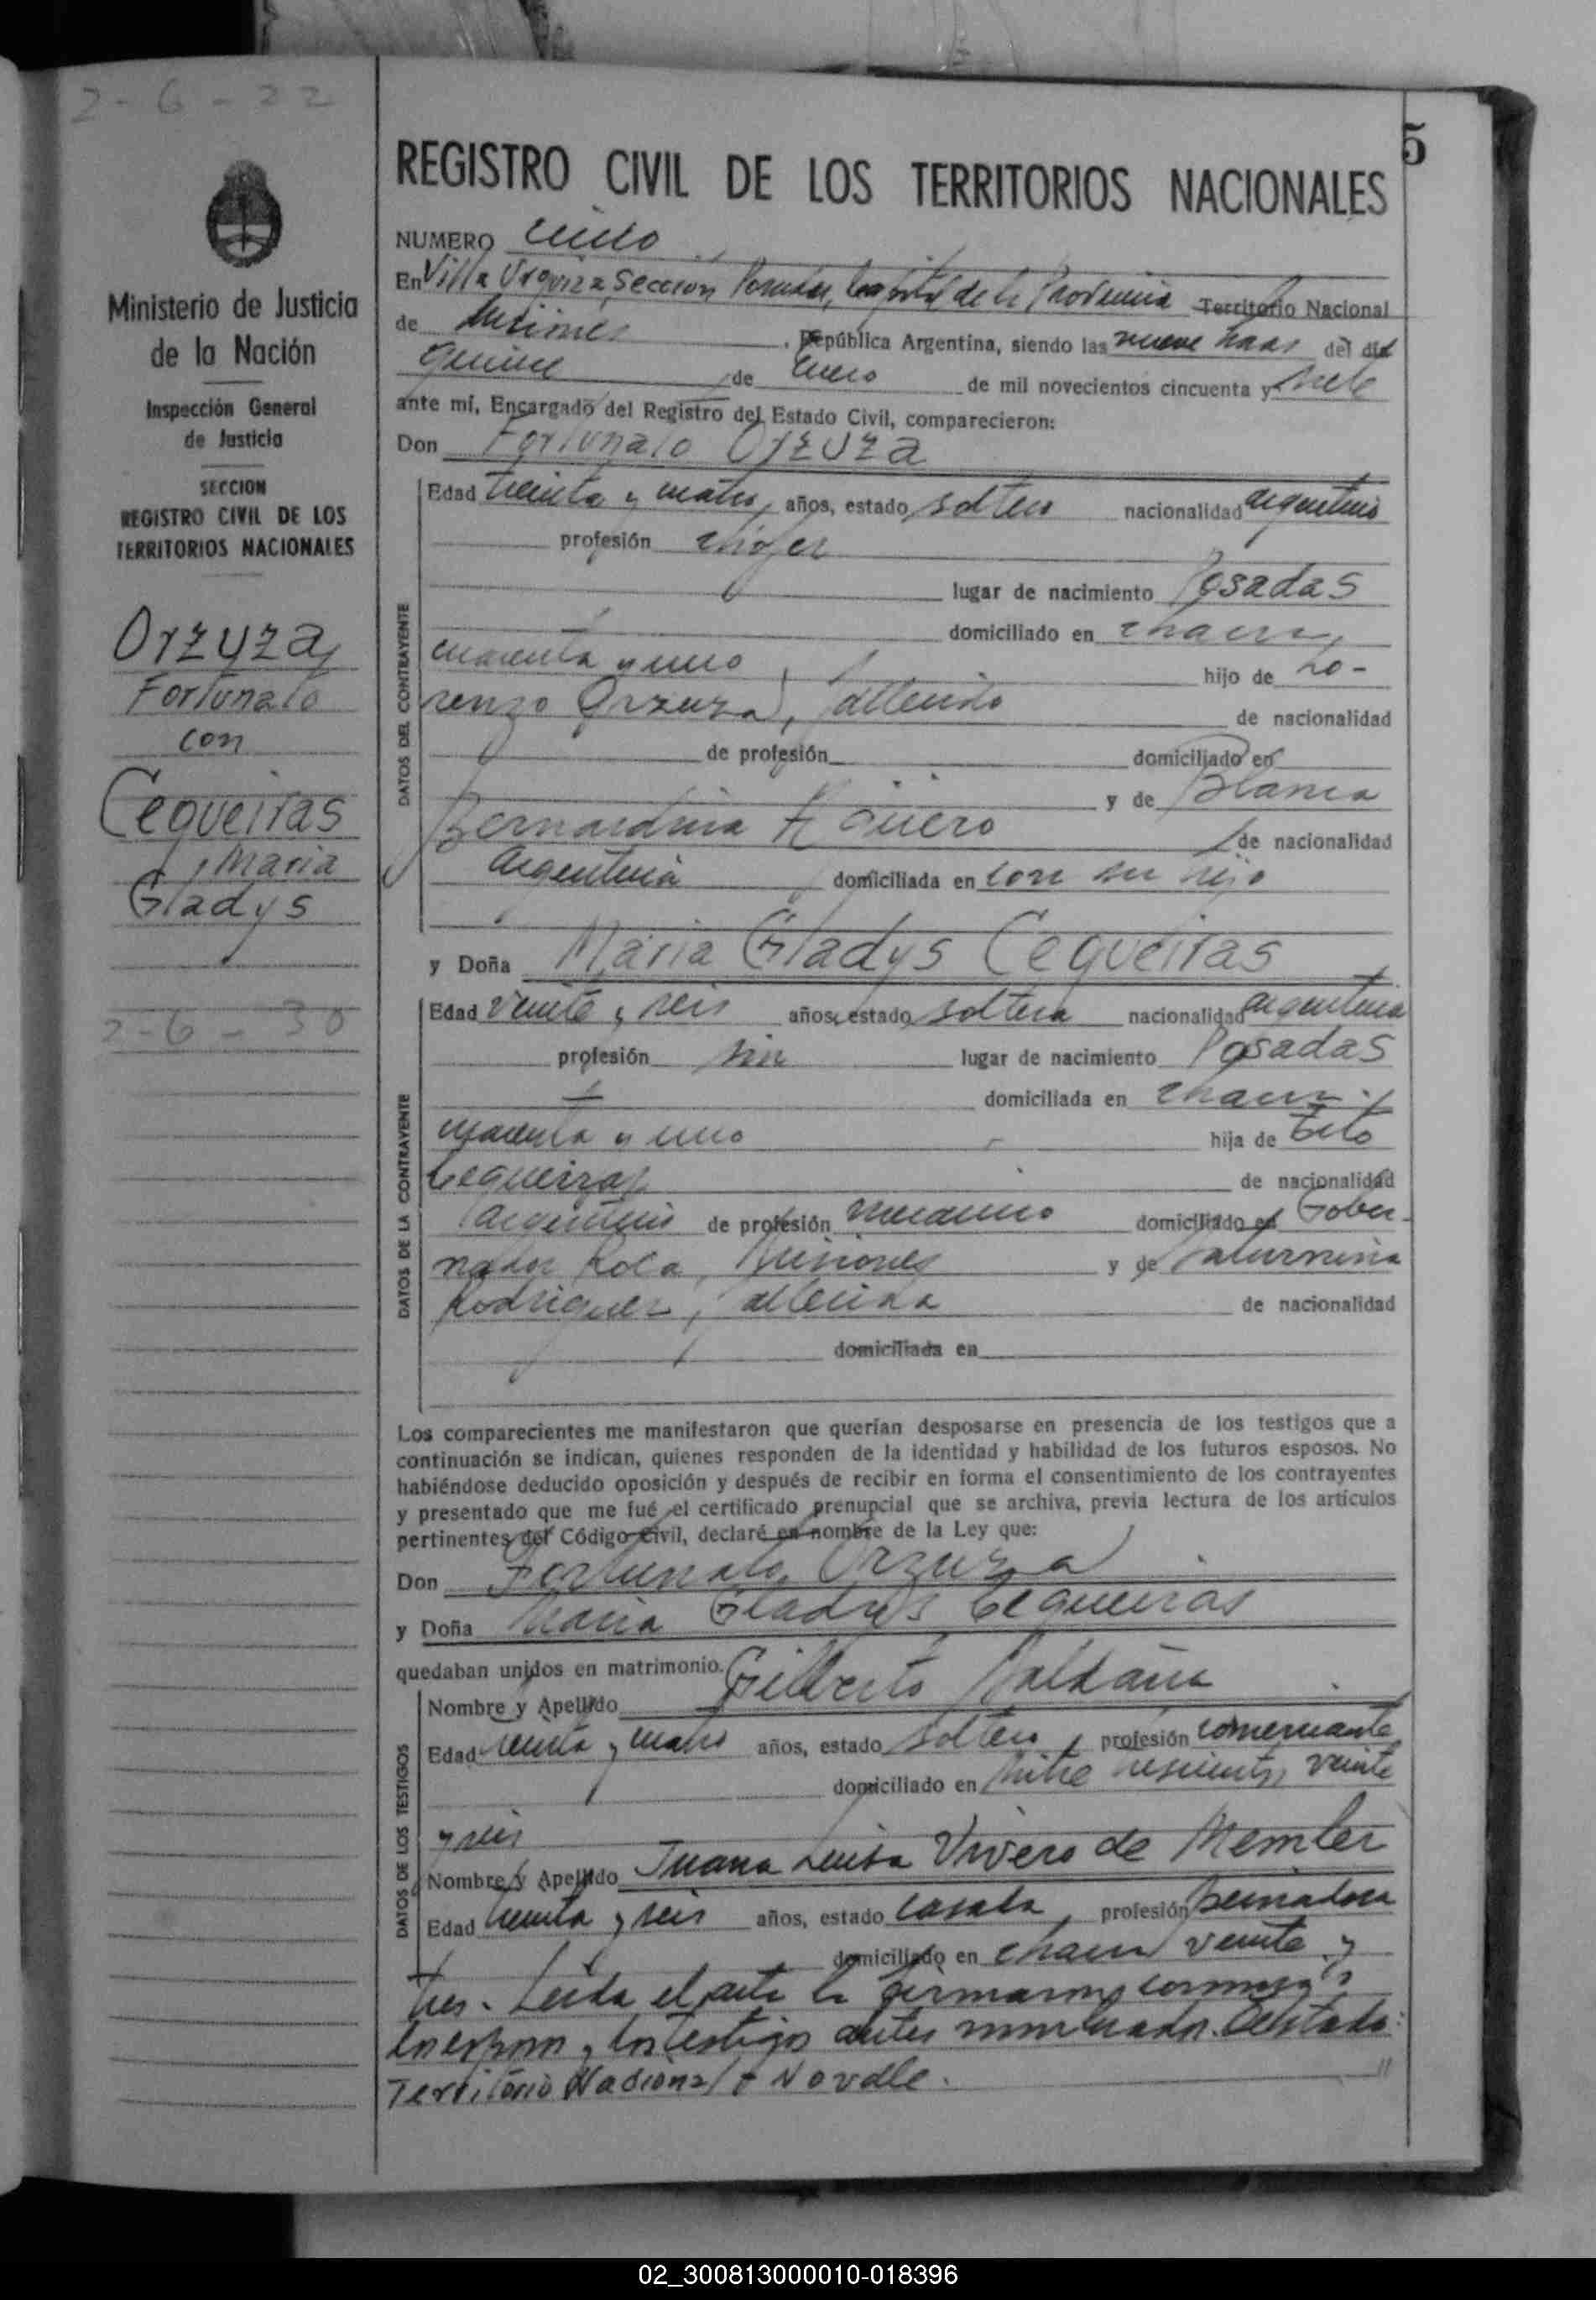 2-6-22
5
REGISTRO CIVIL DE LOS TERRITORIOS NACIONALES
Ministerio de Justicia
de la Nación
Inspección General
de Justicia
SECCION
REGISTRO CIVIL DE LOS
TERRITORIOS NACIONALES
Orzuza,
Fortunato
con
Cequeiras
Maria
Gladys
2-6-30
NUMERO cinco
En Villa Urquiza, Sección Posadas, Capital de la Provincia Territorio Nacional
de Misiones, República Argentina, siendo las nueve horas del día
quince de Enero de mil novecientos cincuenta y siete
ante mí, Encargado del Registro del Estado Civil, comparecieron:
Don Fortunato Orzuza
DATOS DEL CONTRAYENTE
Edad treinta y cuatro, años, estado soltero nacionalidad argentino
profesión chofer
lugar de nacimiento Posadas
domiciliado en
cuarenta y uno, hijo de Lo-
renzo Orzuza, fallecido de nacionalidad
de profesión domiciliado en
y de Blanca
Bernardina Agüero de nacionalidad
argentina domiciliada en con su hijo
y Doña Maria Gladys Cequeiras
DATOS DE LA CONTRAYENTE
Edad veinte y seis años, estado soltera nacionalidad argentina
profesión sin lugar de nacimiento Posadas
domiciliada en
cuarenta y uno hija de Tito
Cequeiras, de nacionalidad
argentino de profesión mecánico domiciliado en Gober-
nador Roca, Misiones y de Saturnina
Rodriguez, fallecida de nacionalidad
domiciliada en
Los comparecientes me manifestaron que querían desposarse en presencia de los testigos que a
continuación se indican, quienes responden de la identidad y habilidad de los futuros esposos. No
habiéndose deducido oposición y después de recibir en forma el consentimiento de los contrayentes
y presentado que me fué el certificado prenupcial que se archiva, previa lectura de los artículos
pertinentes del Código Civil, declaré en nombre de la Ley que:
Don Fortunato Orzuza
y Doña Maria Gladys Cequeiras
quedaban unidos en matrimonio.
DATOS DE LOS TESTIGOS
Nombre y Apellido Gilberto Maldana
Edad treinta y cuatro años, estado soltero, profesión comerciante
domiciliado en Mitre veinte
y seis
Nombre y Apellido Juana Luisa Vivero de Memler
Edad treinta y seis años, estado casada, profesión peinadora
domiciliado en veinte y
tres. Leida el acta la firmaron conmigo
los esposos y los testigos antes nombrados. Testado:
Territorio Nacional: No vale.
02_300813000010-018396